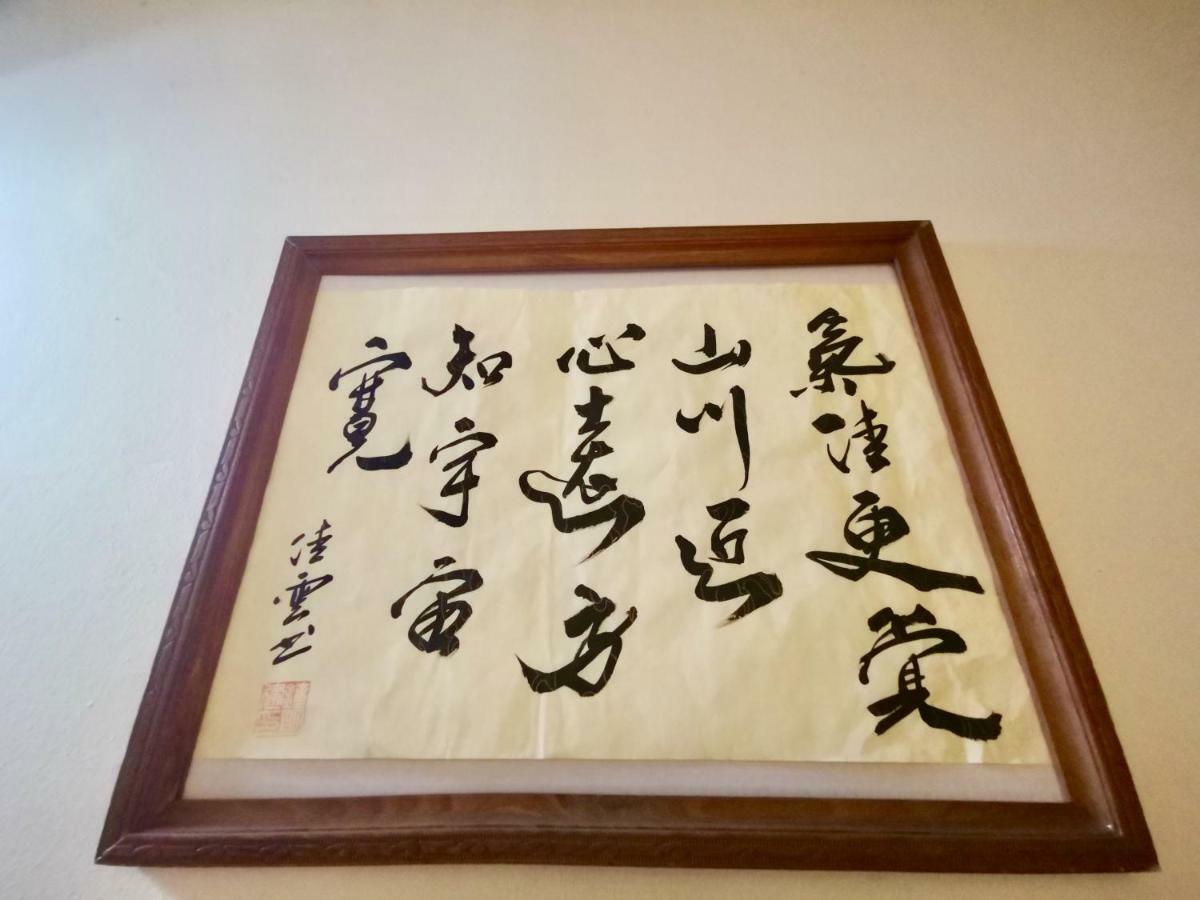 氣清更覺
山川近
心遠方
知宇宙
寬
雲书